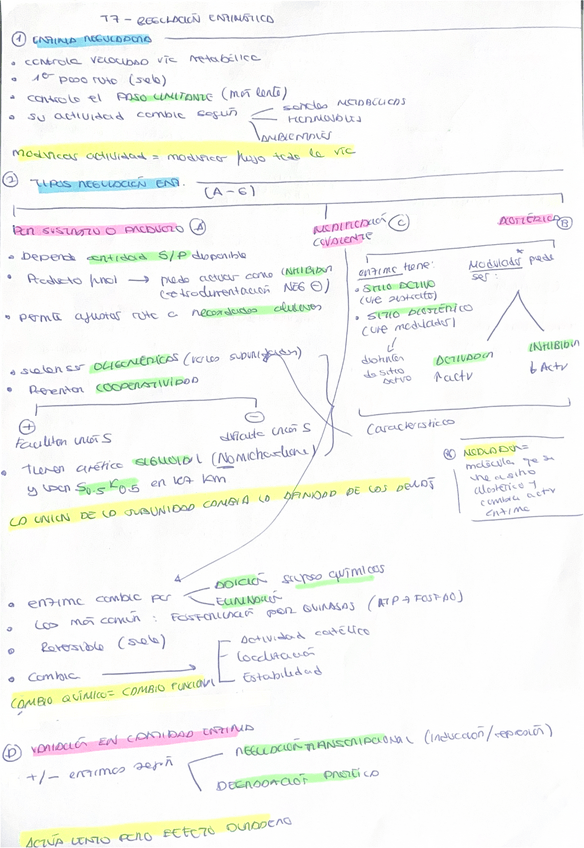 T7 - REGULACIÓN ENZIMÁTICA
① ENZIMA REGULADORA
• controla velocidad vía metabólica
• 1er paso ruta (suele)
• controla el PASO LIMITANTE (más lento)
• su actividad cambia según
señales METABÓLICAS
HORMONALES
AMBIENTALES
Modificar actividad = modificar flujo toda la vía
② TIPOS REGULACIÓN ENZ.
(A-E)
POR SUSTRATO O PRODUCTO Ⓐ
• Depende cantidad S/P disponible
• Producto final → puede actuar como INHIBIDOR
(retroalimentación NEG ⊖)
• permite ajustar ruta a necesidades celulares
MODIFICACIÓN Ⓒ
COVALENTE
ALOSTÉRICA Ⓑ
enzima tiene:
• SITIO ACTIVO
(une sustrato)
• SITIO ALOSTÉRICO
(une modulador)
↓
distinto
do sitio
activo
Modulador* puede
ser:
ACTIVADOR
↑ activ
INHIBIDOR
↓ Activ
Característica
• suelen ser OLIGOMÉRICAS (varias subunidades)
• Presentan COOPERATIVIDAD
⊕
Facilitan unión S
⊖
dificulta unión S
• Tienen cinética SIGMOIDAL (No michaeliana)
y usan S0.5 K0.5 en vez Km
LA UNIÓN DE LA SUBUNIDAD CAMBIA LA AFINIDAD DE LAS DEMÁS
* MODULADOR =
molécula que se
une a sitio
alostérico y
cambia activ
enzima
• enzima cambia por
ADICIÓN
ELIMINACIÓN
grupos químicos
• Las más común: FOSFORILACIÓN POR QUINASAS (ATP → FOSFATO)
• Reversible (suele)
• Cambia →
Actividad catalítica
Localización
Estabilidad
CAMBIO QUÍMICO = CAMBIO FUNCIONAL
Ⓓ VARIACIÓN EN CANTIDAD ENZIMA
+/- enzimas según
REGULACIÓN TRANSCRIPCIONAL (inducción/represión)
DEGRADACIÓN PROTEICA
ACTÚA LENTO PERO EFECTO DURADERO